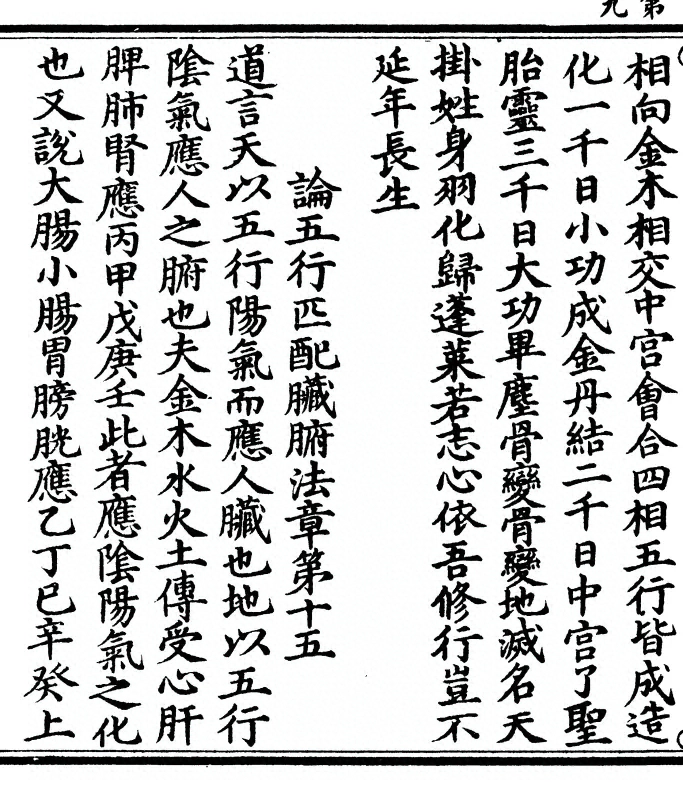 第九
相向金木相交中宮會合四相五行皆成造
化一千日小功成金丹結二千日中宮了聖
胎靈三千日大功畢塵骨變骨變地滅名天
掛姓身羽化歸蓬萊若志心依吾修行豈不
延年長生
論五行匹配臟腑法章第十五
道言天以五行陽氣而應人臟也地以五行
陰氣應人之腑也夫金木水火土傳受心肝
脾肺腎應丙甲戊庚壬此者應陰陽氣之化
也又說大腸小腸胃膀胱應乙丁巳辛癸上